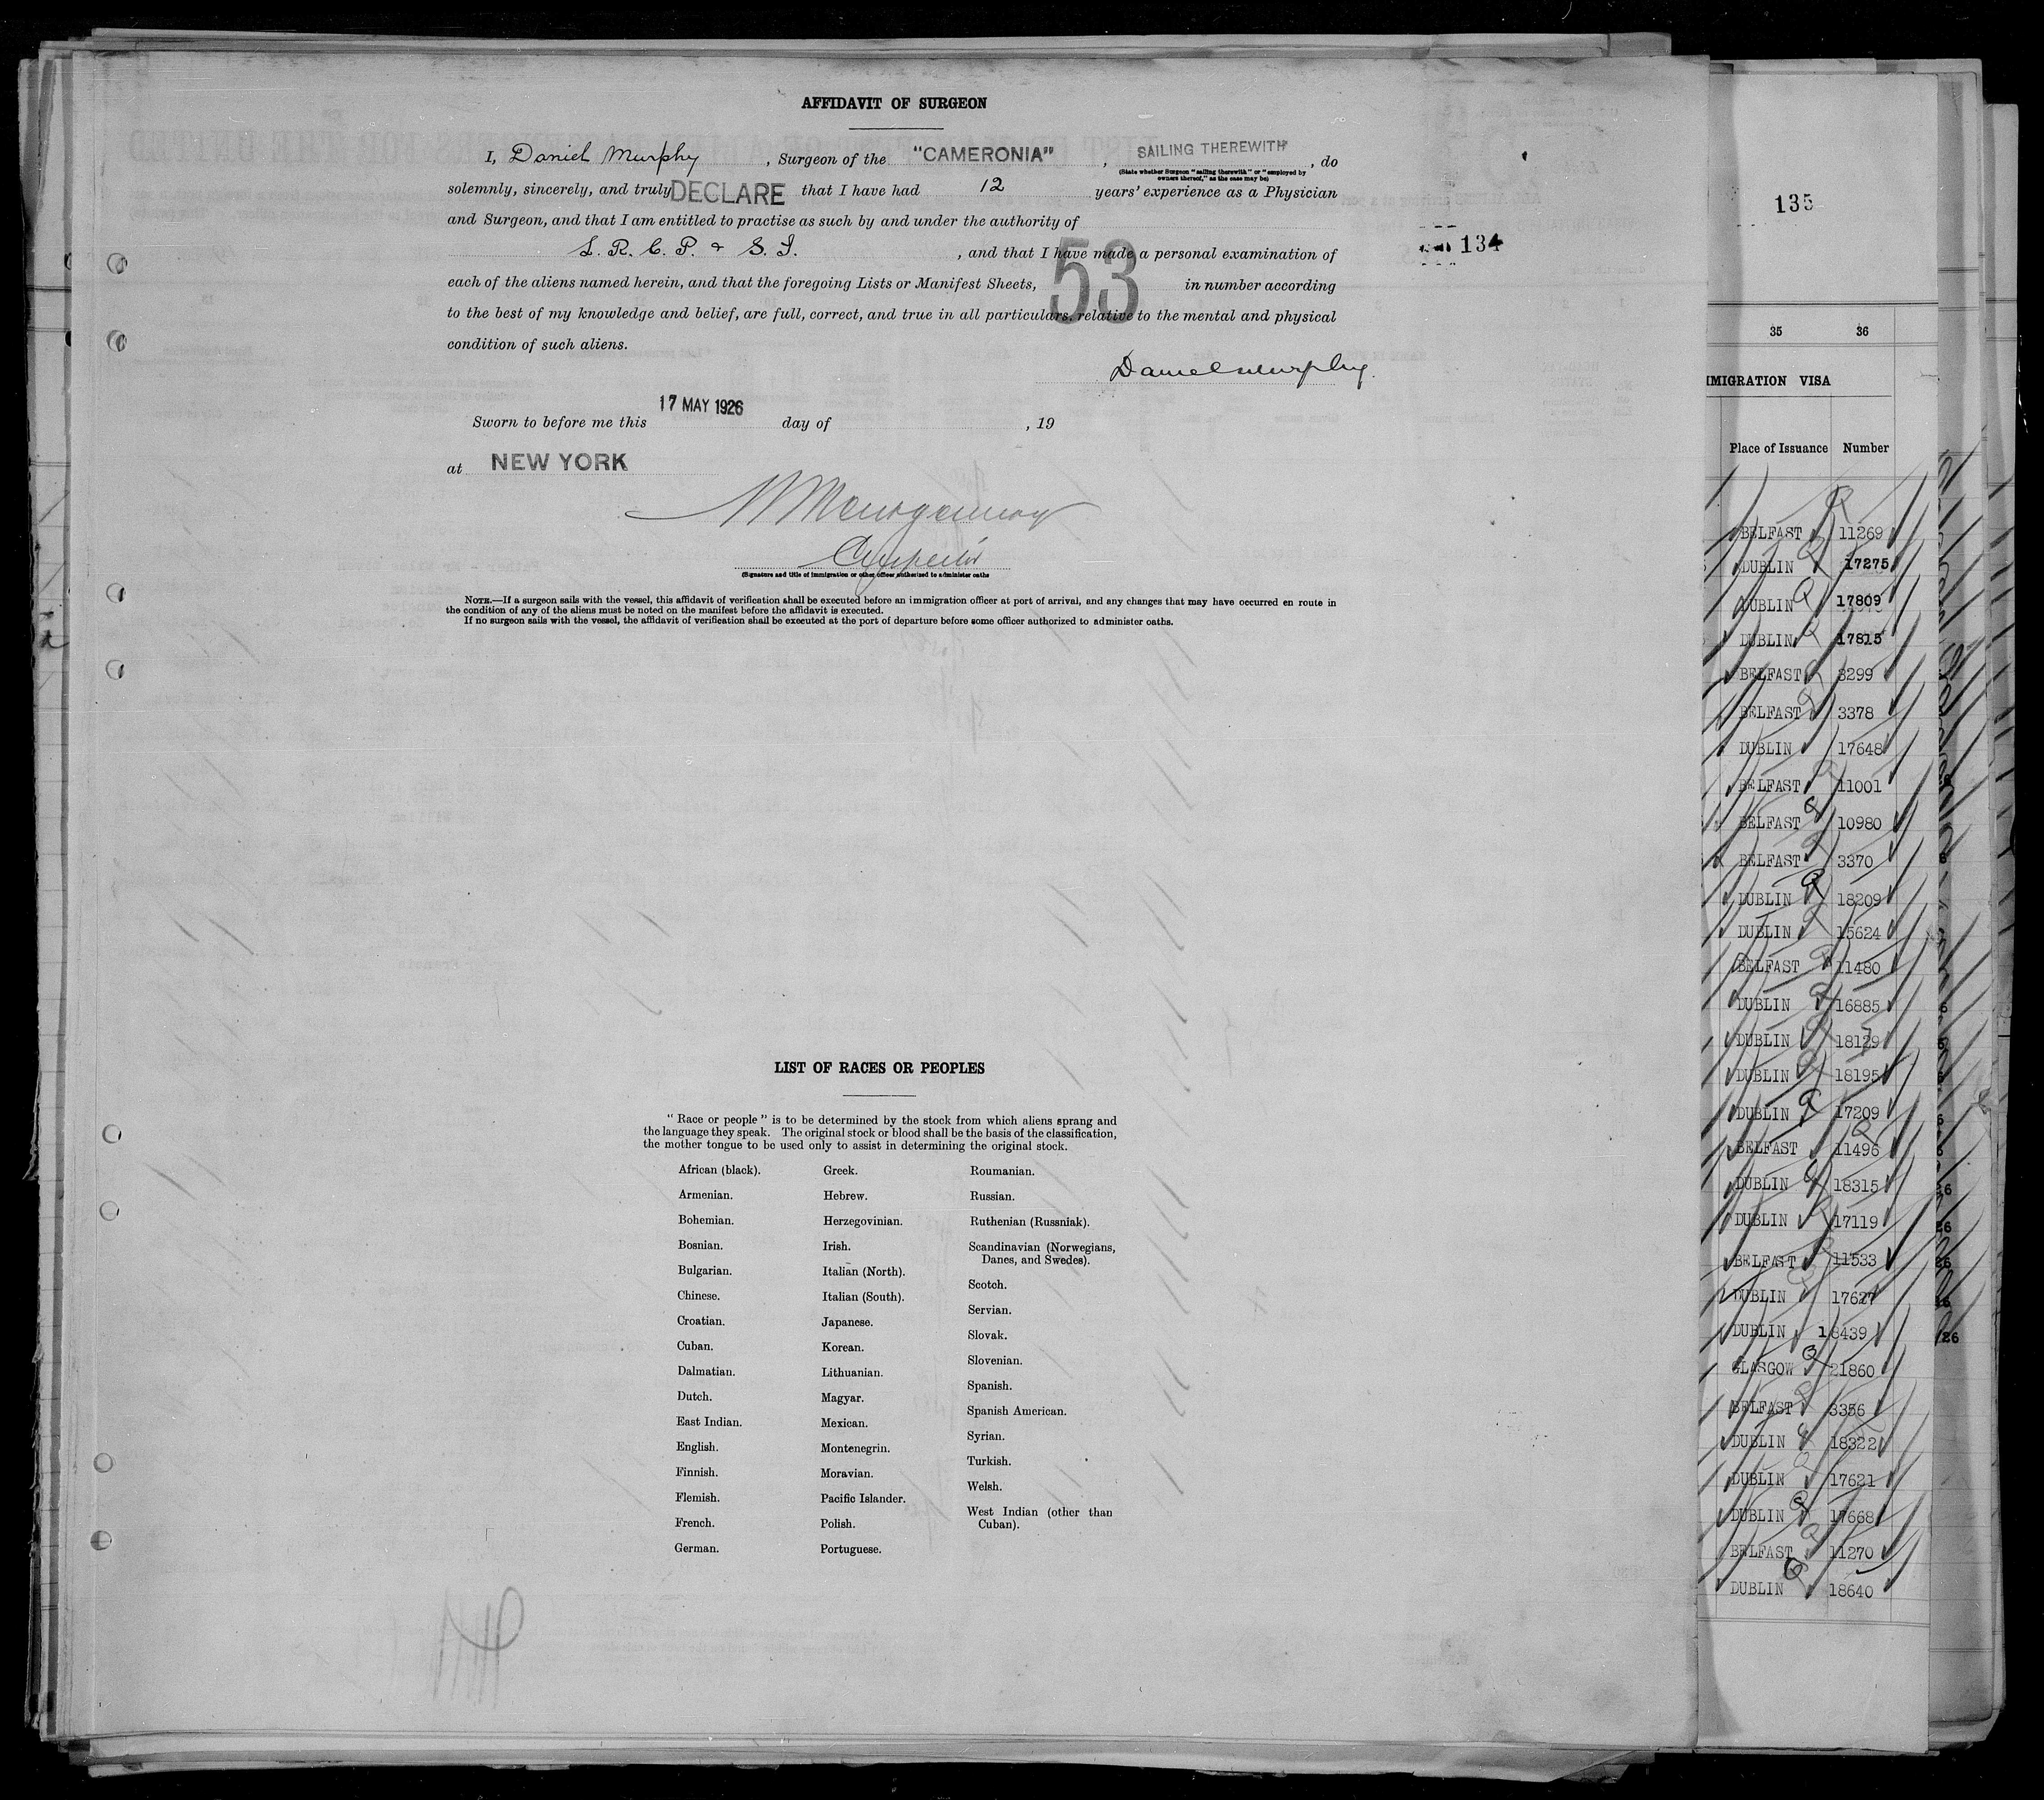 AFFIDAVIT OF SURGEON
I, Daniel Murphy, Surgeon of the "CAMERONIA", SAILING THEREWITH, do
(State whether Surgeon "sailing therewith" or "employed by
owners thereof," as the case may be)
solemnly, sincerely, and truly DECLARE that I have had 12 years' experience as a Physician
and Surgeon, and that I am entitled to practise as such by and under the authority of
L. R. C. P. & S. I., and that I have made a personal examination of
each of the aliens named herein, and that the foregoing Lists or Manifest Sheets, 53 in number according
to the best of my knowledge and belief, are full, correct, and true in all particulars, relative to the mental and physical
condition of such aliens.
Daniel Murphy.
Sworn to before me this 17 MAY 1926 day of , 19
at NEW YORK
(Signature and title of immigration or other officer authorized to administer oaths
NOTE.—If a surgeon sails with the vessel, this affidavit of verification shall be executed before an immigration officer at port of arrival, and any changes that may have occurred en route in
the condition of any of the aliens must be noted on the manifest before the affidavit is executed.
If no surgeon sails with the vessel, the affidavit of verification shall be executed at the port of departure before some officer authorized to administer oaths.
134
LIST OF RACES OR PEOPLES
"Race or people" is to be determined by the stock from which aliens sprang and
the language they speak. The original stock or blood shall be the basis of the classification,
the mother tongue to be used only to assist in determining the original stock.
African (black).
Armenian.
Bohemian.
Bosnian.
Bulgarian.
Chinese.
Croatian.
Cuban.
Dalmatian.
Dutch.
East Indian.
English.
Finnish.
Flemish.
French.
German.
Greek.
Hebrew.
Herzegovinian.
Irish.
Italian (North).
Italian (South).
Japanese.
Korean.
Lithuanian.
Magyar.
Mexican.
Montenegrin.
Moravian.
Pacific Islander.
Polish.
Portuguese.
Roumanian.
Russian.
Ruthenian (Russniak).
Scandinavian (Norwegians,
Danes, and Swedes).
Scotch.
Servian.
Slovak.
Slovenian.
Spanish.
Spanish American.
Syrian.
Turkish.
Welsh.
West Indian (other than
Cuban).
135
35 36
IMMIGRATION VISA
Place of Issuance Number
BELFAST 11269
DUBLIN 17275
DUBLIN 17809
DUBLIN 17815
BELFAST 3299
BELFAST 3378
DUBLIN 17648
BELFAST 11001
BELFAST 10980
BELFAST 3370
DUBLIN 18209
DUBLIN 15624
BELFAST 11480
DUBLIN 16885
DUBLIN 18129
DUBLIN 18195
DUBLIN 17209
BELFAST 11496
DUBLIN 18315
DUBLIN 17119
BELFAST 11533
DUBLIN 17627
DUBLIN 18439
GLASGOW 21860
BELFAST 3356
DUBLIN 18322
DUBLIN 17621
DUBLIN 17668
BELFAST 11270
DUBLIN 18640